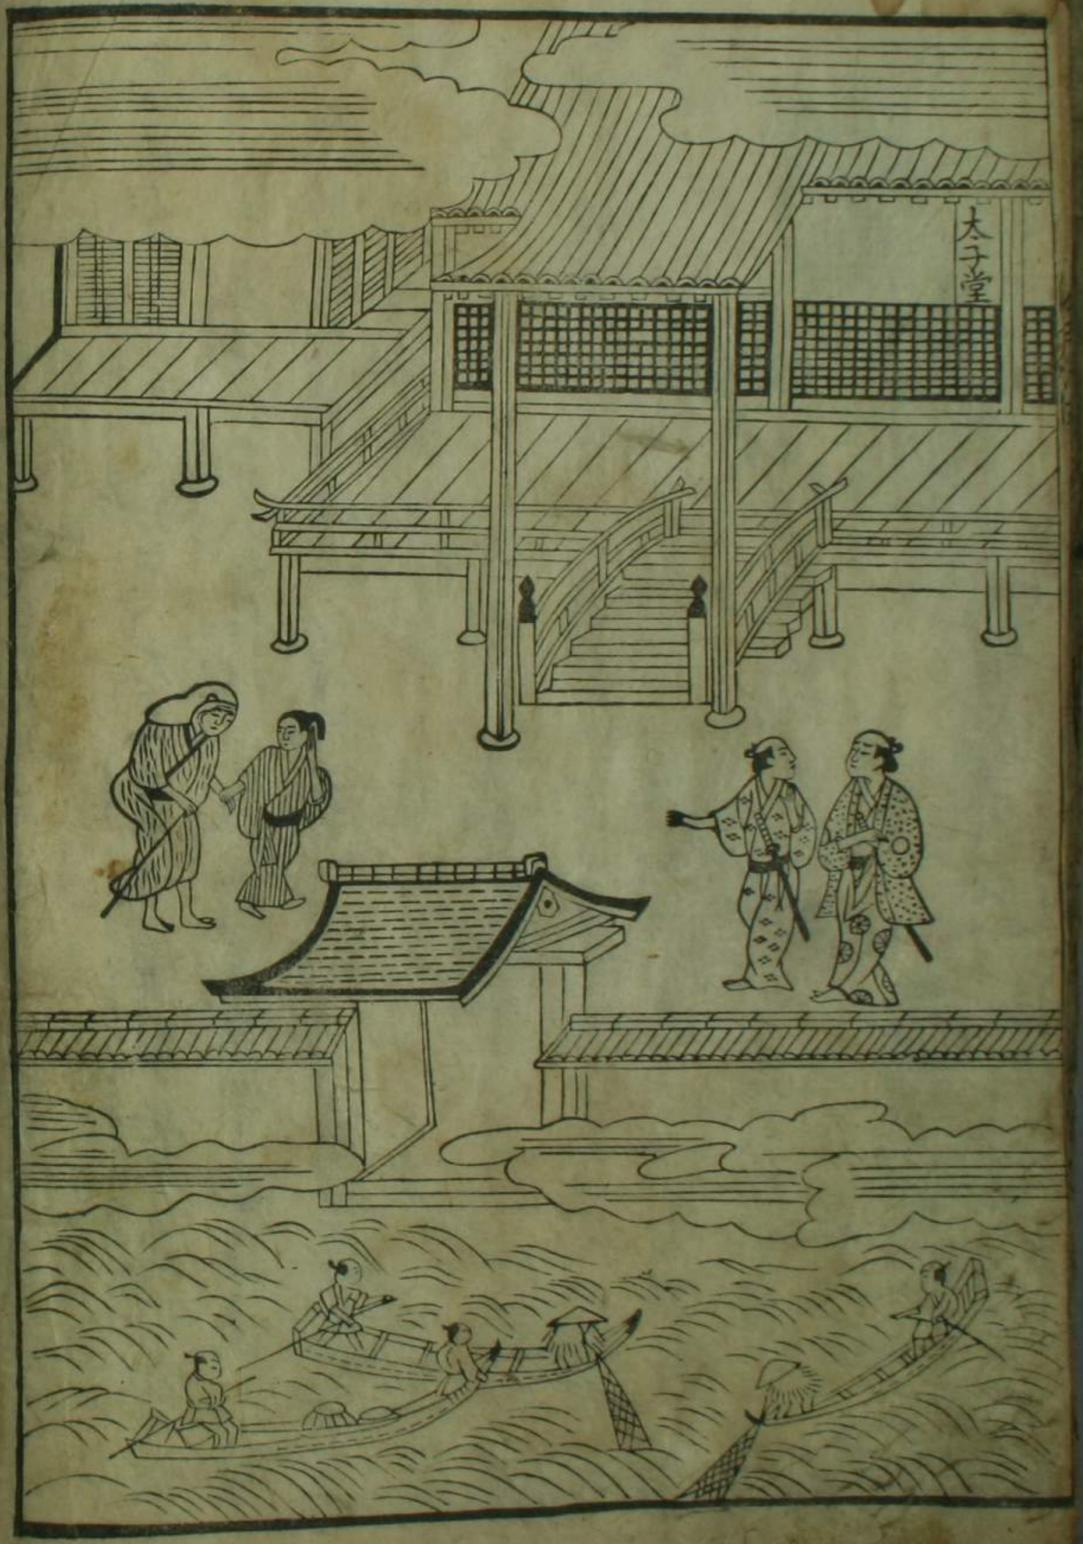 太子堂